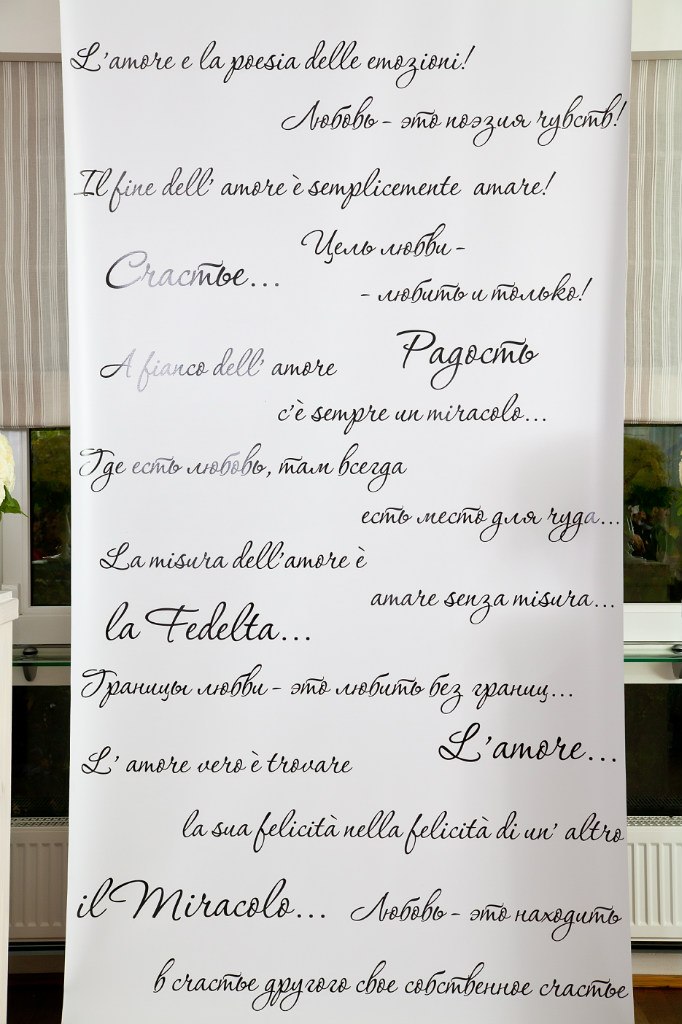 L'amore e la poesia delle emozioni!
Любовь - это поэзия чувств!
Il fine dell' amore è semplicemente amare!
Цель любви -
Счастье...
- любить и только!
Радость
A fianco dell' amore
c'è sempre un miracolo...
Где есть любовь, там всегда
есть место для чуда...
La misura dell'amore è
amare senza misura...
la Fedelta...
Границы любви - это любить без границ...
L'amore...
L' amore vero è trovare
la sua felicità nella felicità di un' altro
il Miracolo...
Любовь - это находить
в счастье другого свое собственное счастье